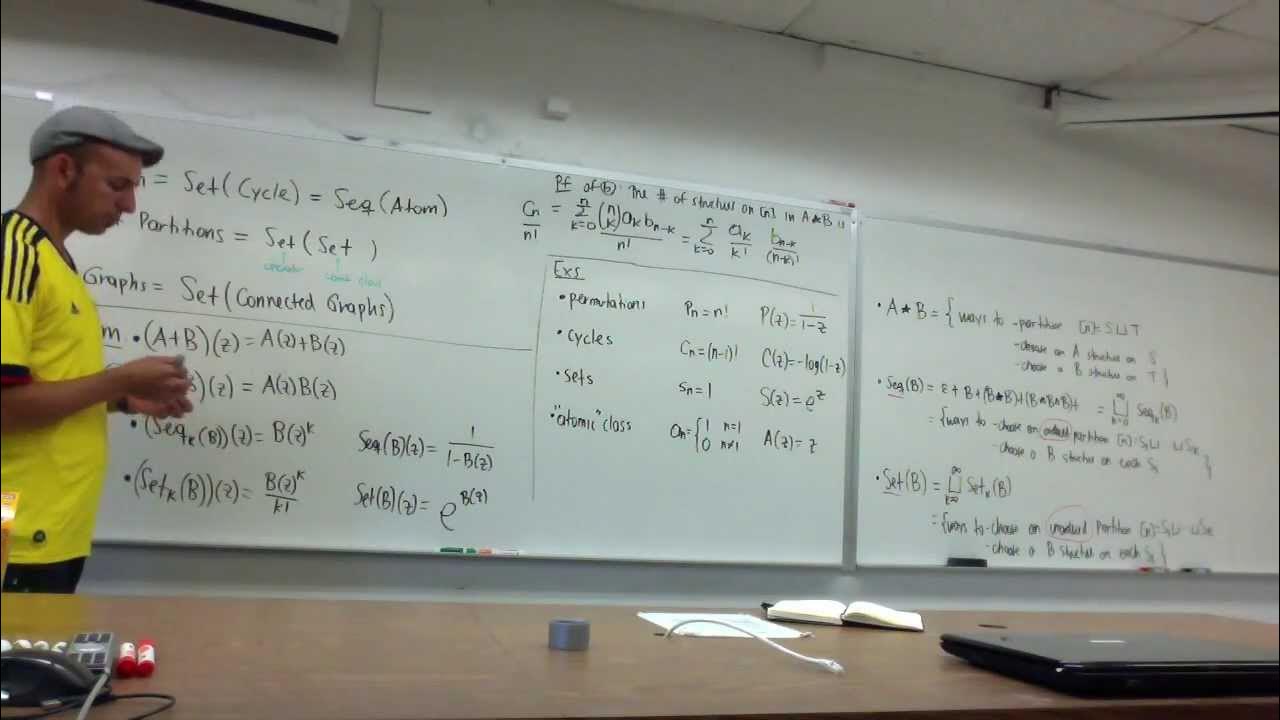 = Set(Cycle) = Seq(Atom)
Partitions = Set(Set )
operator
Graphs = Set(Connected Graphs)
m • (A+B)(z) = A(z)+B(z)
)(z) = A(z)B(z)
• (Seq_k(B))(z) = B(z)^k
Seq(B)(z) = 1/(1-B(z))
• (Set_k(B))(z) = B(z)^k/k!
Set(B)(z) = e^B(z)
Pf of (b) The # of structures on [n] in A★B is
C_n/n! = ∑_{k=0}^{n} (n k) a_k b_{n-k} / n! = ∑_{k=0}^{n} a_k/k! b_{n-k}/(n-k)!
Exs
• permutations P_n = n! P(z) = 1/(1-z)
• cycles C_n = (n-1)! C(z) = -log(1-z)
• sets S_n = 1 S(z) = e^z
• "atomic" class a_n = { 1 n=1 A(z) = z
0 n≠1
• A★B = { ways to -partition [n]=S⊔T
-choose an A structure on S
-choose a B structure on T }
• Seq(B) = ε + B + (B★B)+(B★B★B)+ = ⨆_{k=0}^{∞} Seq_k(B)
= {ways to -choose an ordered partition [n]=S₁⊔ ⊔S_k
-choose a B structure on each S_i }
• Set(B) = ⨆_{k=0}^{∞} Set_k(B)
= {ways to -choose an unordered partition [n]=S₁⊔ ⊔S_k
-choose a B structure on each S_i }